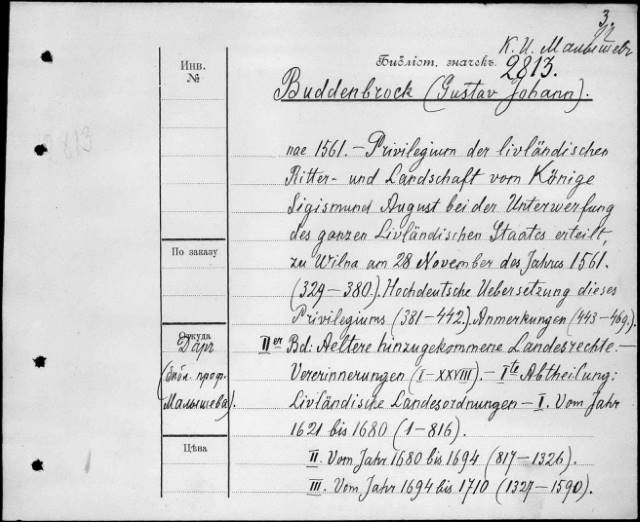 3.
К. И. Малышевъ
Инв.
№
Библіот. значекъ
2813.
Buddenbrock (Gustav Johann).
2813
nae 1561. — Privilegium der livländischen
Ritter- und Landschaft vom Könige
Sigismund August bei der Unterwerfung
des ganzen Livländischen Staates erteilt,
zu Wilna am 28 November des Jahres 1561.
(329—380.). Hochdeutsche Uebersetzung dieses
Privilegiums (381—442.). Anmerkungen (443—469.).
По заказу
Откуда
Даръ
(библ. проф.
Малышева).
IIer Bd. Aeltere hinzugekommene Landesrechte. —
Vererinnerungen (I—XXVIII). — Ite Abtheilung:
Livländische Landesordnungen — I. Vom Jahr
1621 bis 1680 (1—816).
Цѣна
II. Vom Jahr 1680 bis 1694 (817—1326).
III. Vom Jahr 1694 bis 1710 (1327—1590).